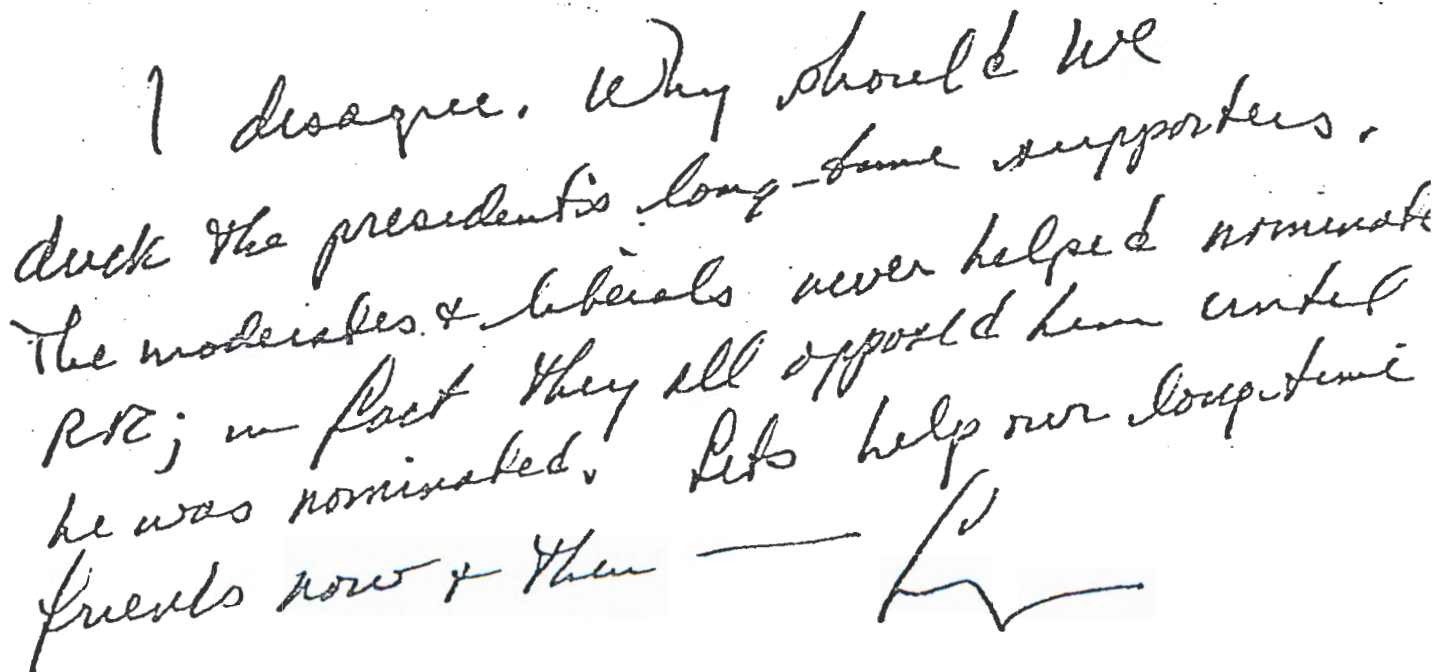 I disagree. Why should we
duck the president's long-time supporters.
The moderates & liberals never helped nominate
RR; in fact they all opposed him until
he was nominated. Lets help our long-time
friends now & then —